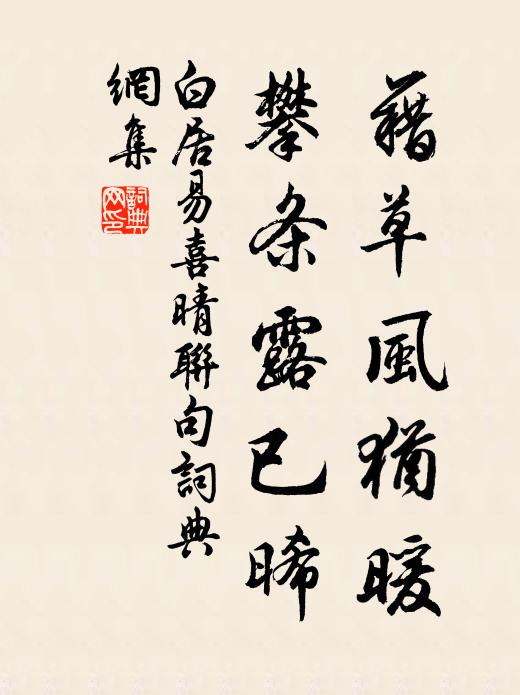 藉草風猶暖
攀条露已晞
白居易喜晴聯句詞典
網集
詞典網印